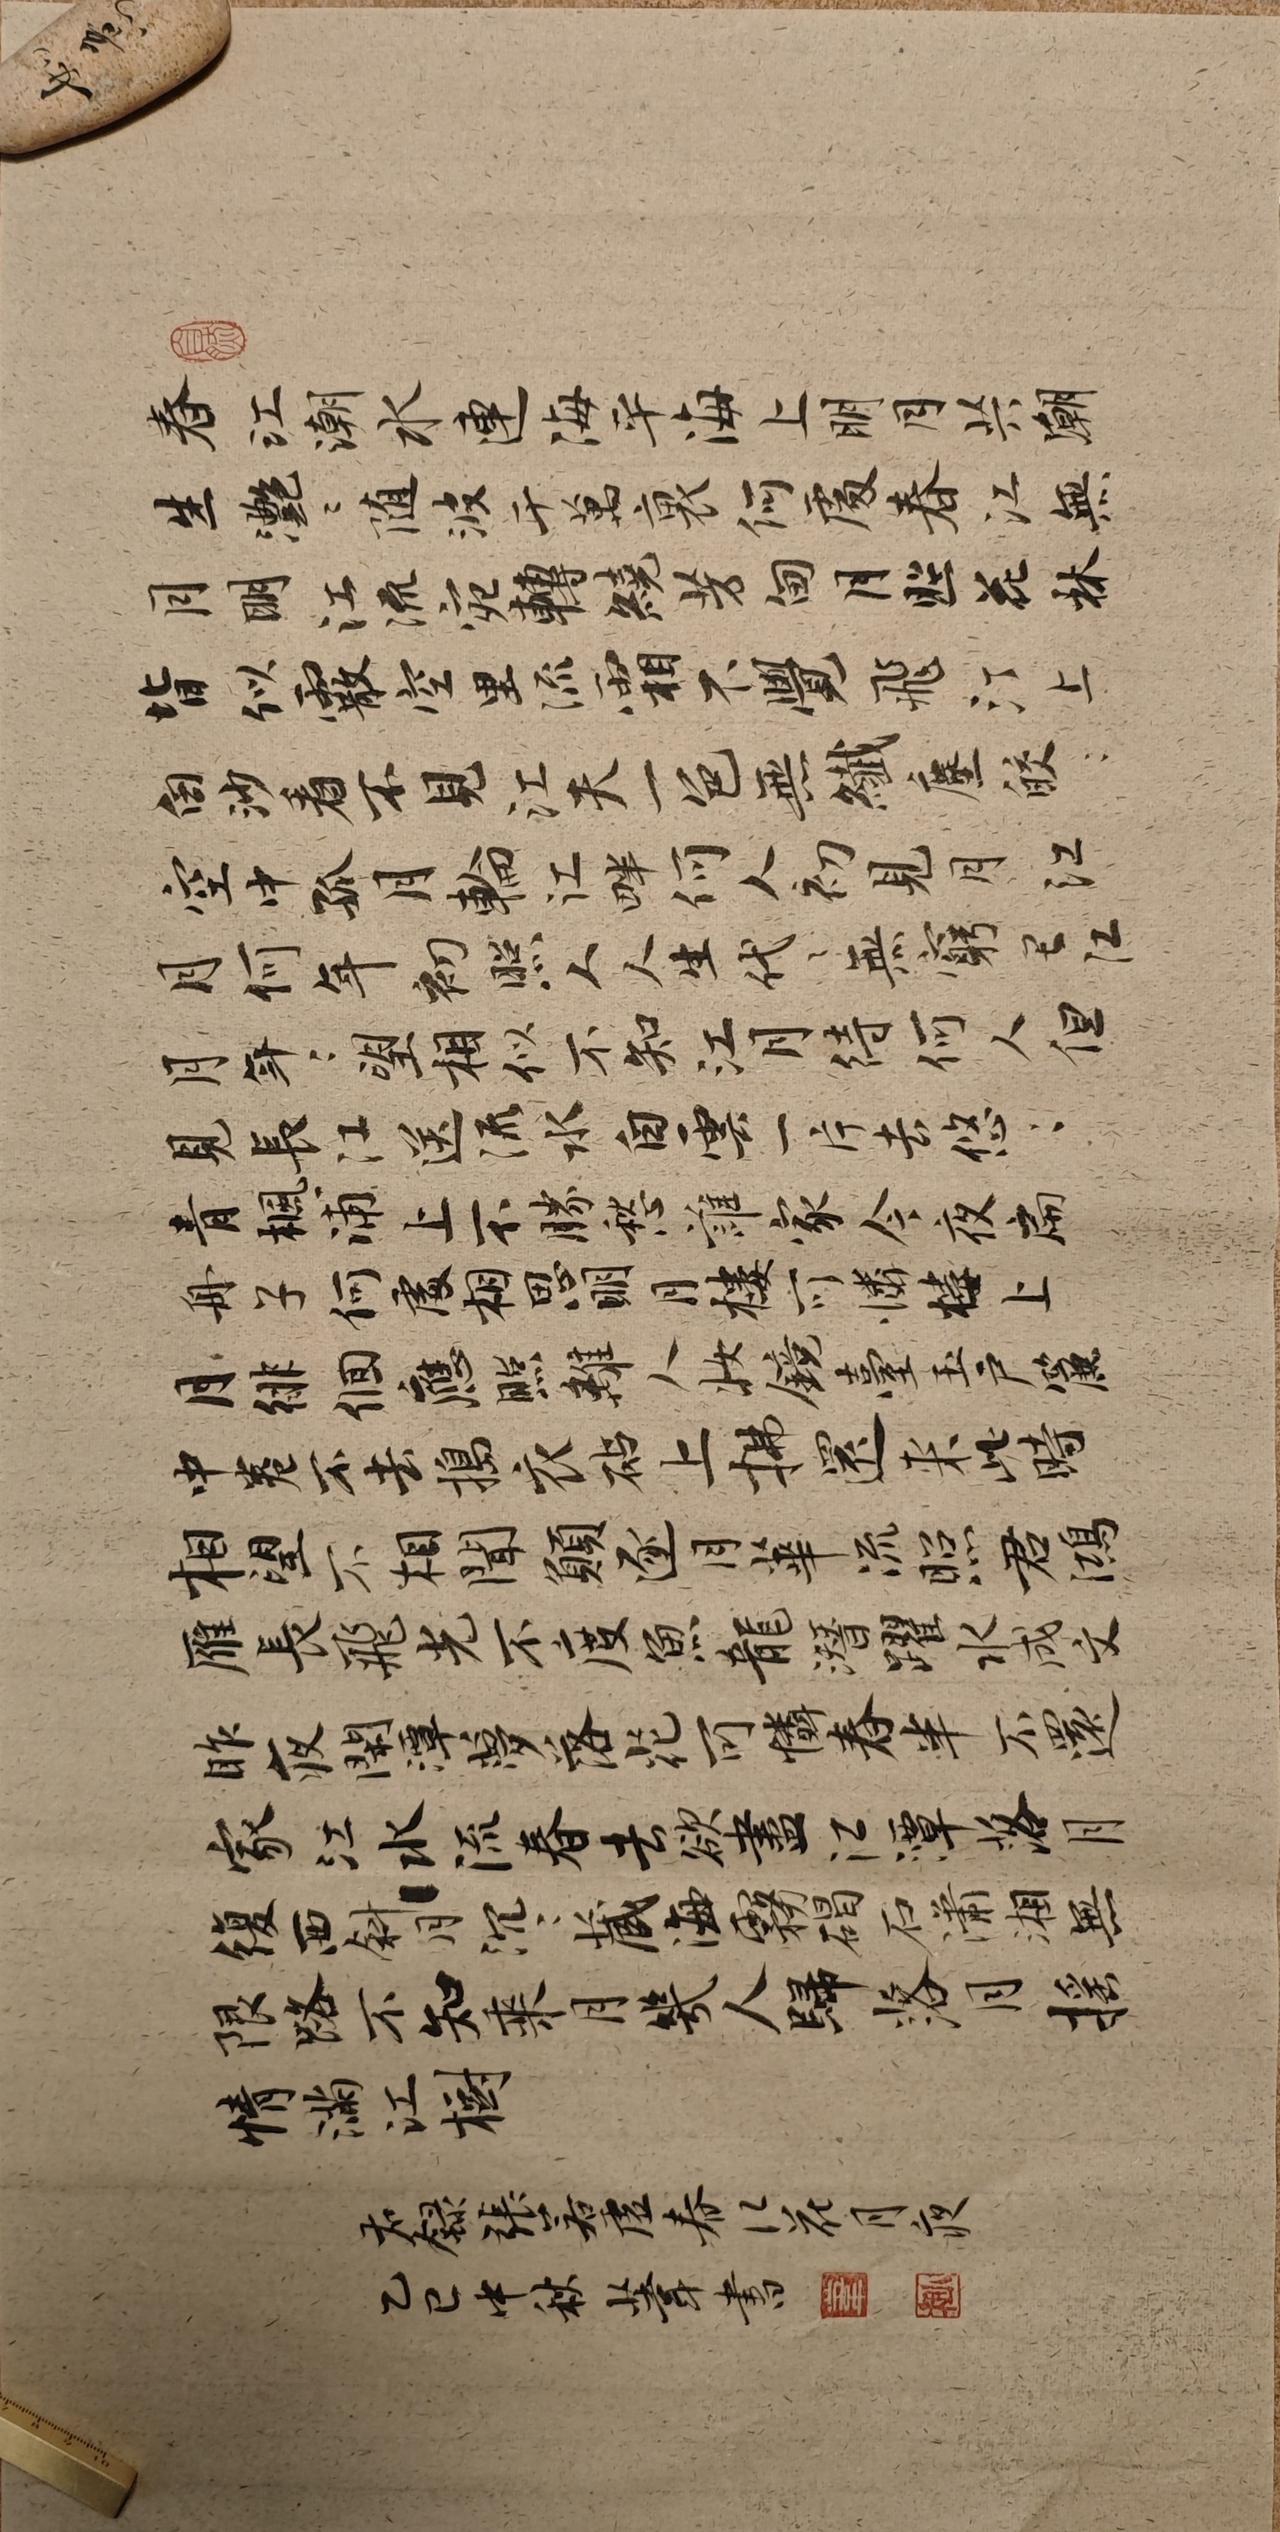 春江潮水連海平海上明月共潮
生灧〻随波千萬裏何處春江無
月明江流宛轉繞芳甸月照花林
皆似霰空里流霜不覺飛汀上
白沙看不見江天一色無纖塵皎〻
空中孤月輪江畔何人初見月江
月何年初照人人生代〻無窮已江
月年〻望相似不知江月待何人但
見長江送流水白雲一片去悠〻
青楓浦上不勝愁誰家今夜扁
舟子何處相思明月樓可憐樓上
月徘徊應照離人妝鏡臺玉戶簾
中卷不去搗衣砧上拂還来此時
相望不相聞願逐月華流照君鴻
雁長飛光不度魚龍潛躍水成文
昨夜閑潭夢落花可憐春半不還
家江水流春去欲盡江潭落月
復西斜月沉〻藏海霧碣石瀟湘無
限路不知乘月幾人歸落月摇
情滿江樹
右錄張若虛春江花月夜
乙巳中秋書